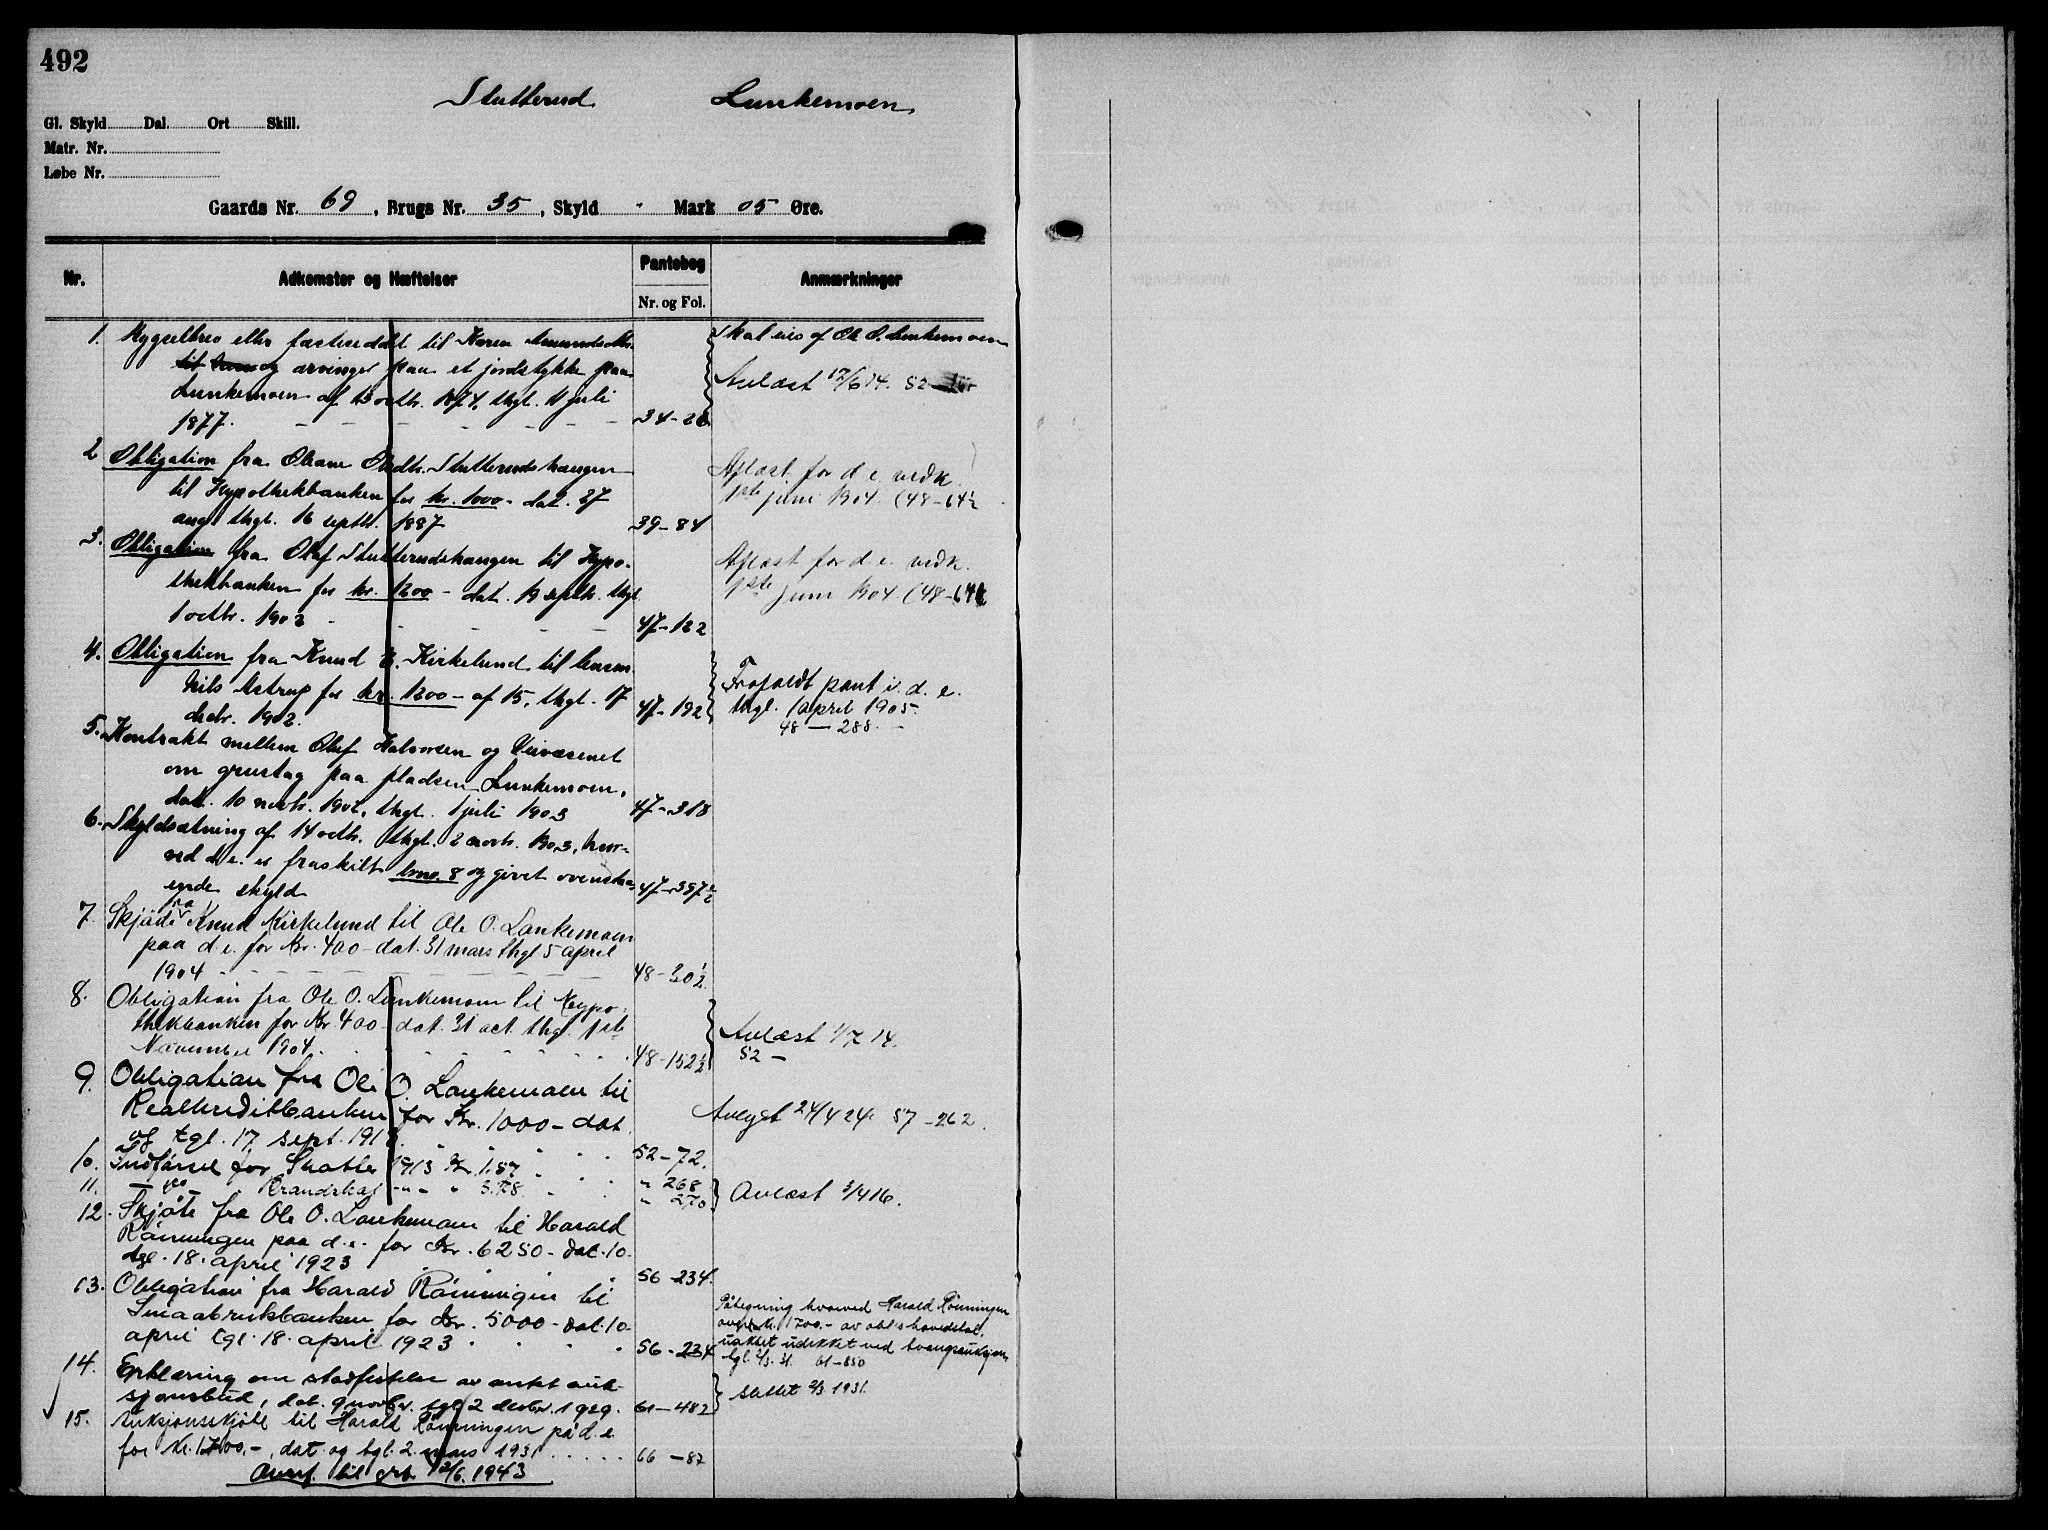 492
Slutterud Lunkemoen
Gl. Skyld Dal. Ort Skill.
Matr. Nr.
Løbe Nr.
Gaards Nr. 69, Brugs Nr. 35, Skyld " Mark 05 Øre.
Nr. Adkomster og Hæftelser Pantebog Anmærkninger
Nr. og Fol.
1. Bygselbrev eller fæsteseddel til Karen Amundsdtr. Skal eies af Ole O. Lunkemoen
og arvinger paa et jordstykke paa
Lunkemoen af 13 octbr. 1874, thgl. 11 juli Avlæst 17/6 14. 52
1877. 34-26
2 Obligation fra Oleane Olsdtr. Slutterudshaugen Aflæst for d. e. vedk.
til Hypothekbanken for kr. 1000 - dat. 27 1ste juni 1904 (48-64½
aug. thgl. 16 septbr. 1887 39-84
3. Obligation fra Olaf Slutterudshaugen til Hypo- Aflæst for d. e. vedk.
thekbanken for kr. 1200 - dat. 19 septbr. thgl. 1ste juni 1904 (48-64½
1 octbr. 1902 47-122
4. Obligation fra Knud Kirkelund til
Nils Astrup for kr. 1200 - af 15, thgl. 17 Frafaldt pant i d. e.
decbr. 1902. 47-192 thgl. 1 april 1905.
48 — 288.
5. Kontrakt mellem Olaf Halvorsen og Veivæsenet
om grustag paa pladsen Lunkemoen,
dat. 10 novbr. 1902, thgl. 1 juli 1903 47-318
6. Skyldsætning af 14 octbr. thgl. 2 novbr. 1903, hvor-
ved d. e. er fraskilt brno. 8 og givet ovenstaa-
ende skyld 47-397½
7. Skjøde fra Knud Kirkelund til Ole O. Lunkemoen
paa d. e. for Kr. 400 - dat. 31 mars thgl 5 april
1904 48-30½
8. Obligation fra Ole O. Lunkemoen til Hypo-
thekbanken for Kr. 400 - dat. 31 oct. thgl. 1ste Avlæst 1/7 14.
November 1904. 48-152½ 52 —
9. Obligation fra Ole O. Lunkemoen til
Realkreditbanken for Kr. 1000 - dat. Avlyst 24/4 24. 57-262.
og tgl. 17 sept. 191 52-72.
10. Indførsel for Skatter 1913 Kr. 1.57 " 268
11. — " — Brandskat " 3.78 " 270 Avlæst 3/4 16.
12. Skjøte fra Ole O. Lunkemoen til Harald
Rønningen paa d. e. for Kr. 6250 - dat. 10.
tgl. 18. april 1923 56-234.
13. Obligation fra Harald Rønningen til Påtegning hvorved Harald Rønningen
Smaabrukbanken for Kr. 5000 - dat. 10. kr. 1700.- av obl.s hovedstol,
april tgl. 18. april 1923 56-234 uaktet udekket ved tvangsauksjon,
tgl. 2/3. 31. 61-850
14. Erklæring om stadfestelse av antat auk-
sjonsbud, dat. 9 novbr. tgl. 2 desbr. 1929. 61-482 slettet 2/3 1931.
15. Auksjonsskjøte til Harald Rønningen på d. e.
for kr. 1700,-, dat. og tgl. 2. mars 1931 66-87
Overf. til grb. 12/6. 1943